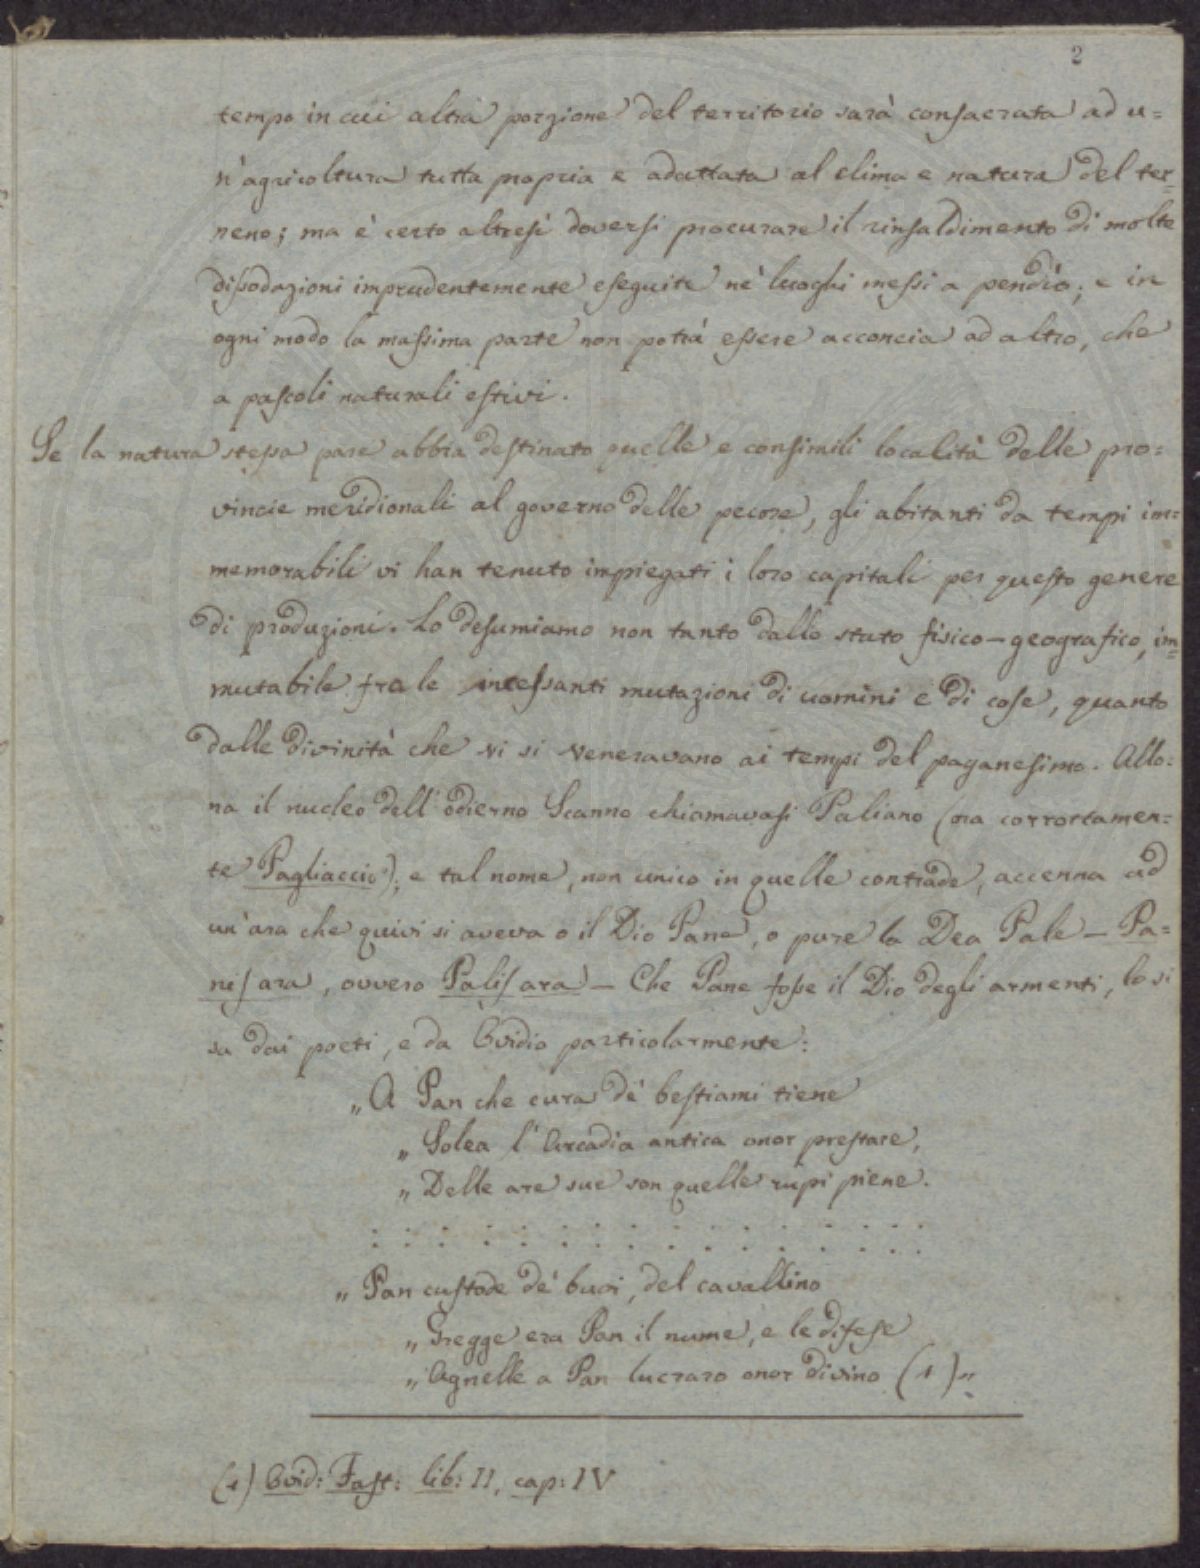 2
tempo in cui altra porzione del territorio sarà consacrata ad u=
n'agricoltura tutta propria e adattata al clima e natura del ter=
reno; ma è certo altresì doversi procurare il rinsaldimento di molte
dissodazioni imprudentemente eseguite ne' luoghi messi a pendìo; e in
ogni modo la massima parte non potrà essere acconcia ad altro, che
a pascoli naturali estivi.
Se la natura stessa pare abbia destinato quelle e consimili località delle pro=
vincie meridionali al governo delle pecore, gli abitanti da tempi im=
memorabili vi han tenuto impiegati i loro capitali per questo genere
di produzioni. Lo desumiamo non tanto dallo stato fisico-geografico, im=
mutabile fra le incessanti mutazioni di uomini e di cose, quanto
dalle divinità che vi si veneravano ai tempi del paganesimo. Allo=
ra il nucleo dell'odierno Scanno chiamavasi Paliano (ora corrottamen=
te Pagliaccio); e tal nome, non unico in quelle contrade, accenna ad
un'ara che quivi si aveva o il Dio Pane, o pure la Dea Pale - Pa=
nis ara, ovvero Palis ara - Che Pane fosse il Dio degli armenti, lo si
sa dai poeti, e da Ovidio particolarmente:
„ A Pan che cura de' bestiami tiene
„ Solea l'Arcadia antica onor prestare,
„ Delle are sue son quelle rupi piene.
. . . . . . . . . . . . . . . .
. . . . . . . . . . . . . . . .
„ Pan custode de' buoi, del cavallino
„ Gregge era Pan il nume, e le difese
„ Agnelle a Pan lucraro onor divino (1) „
(1) Ovid: Fast: lib: II, cap: IV